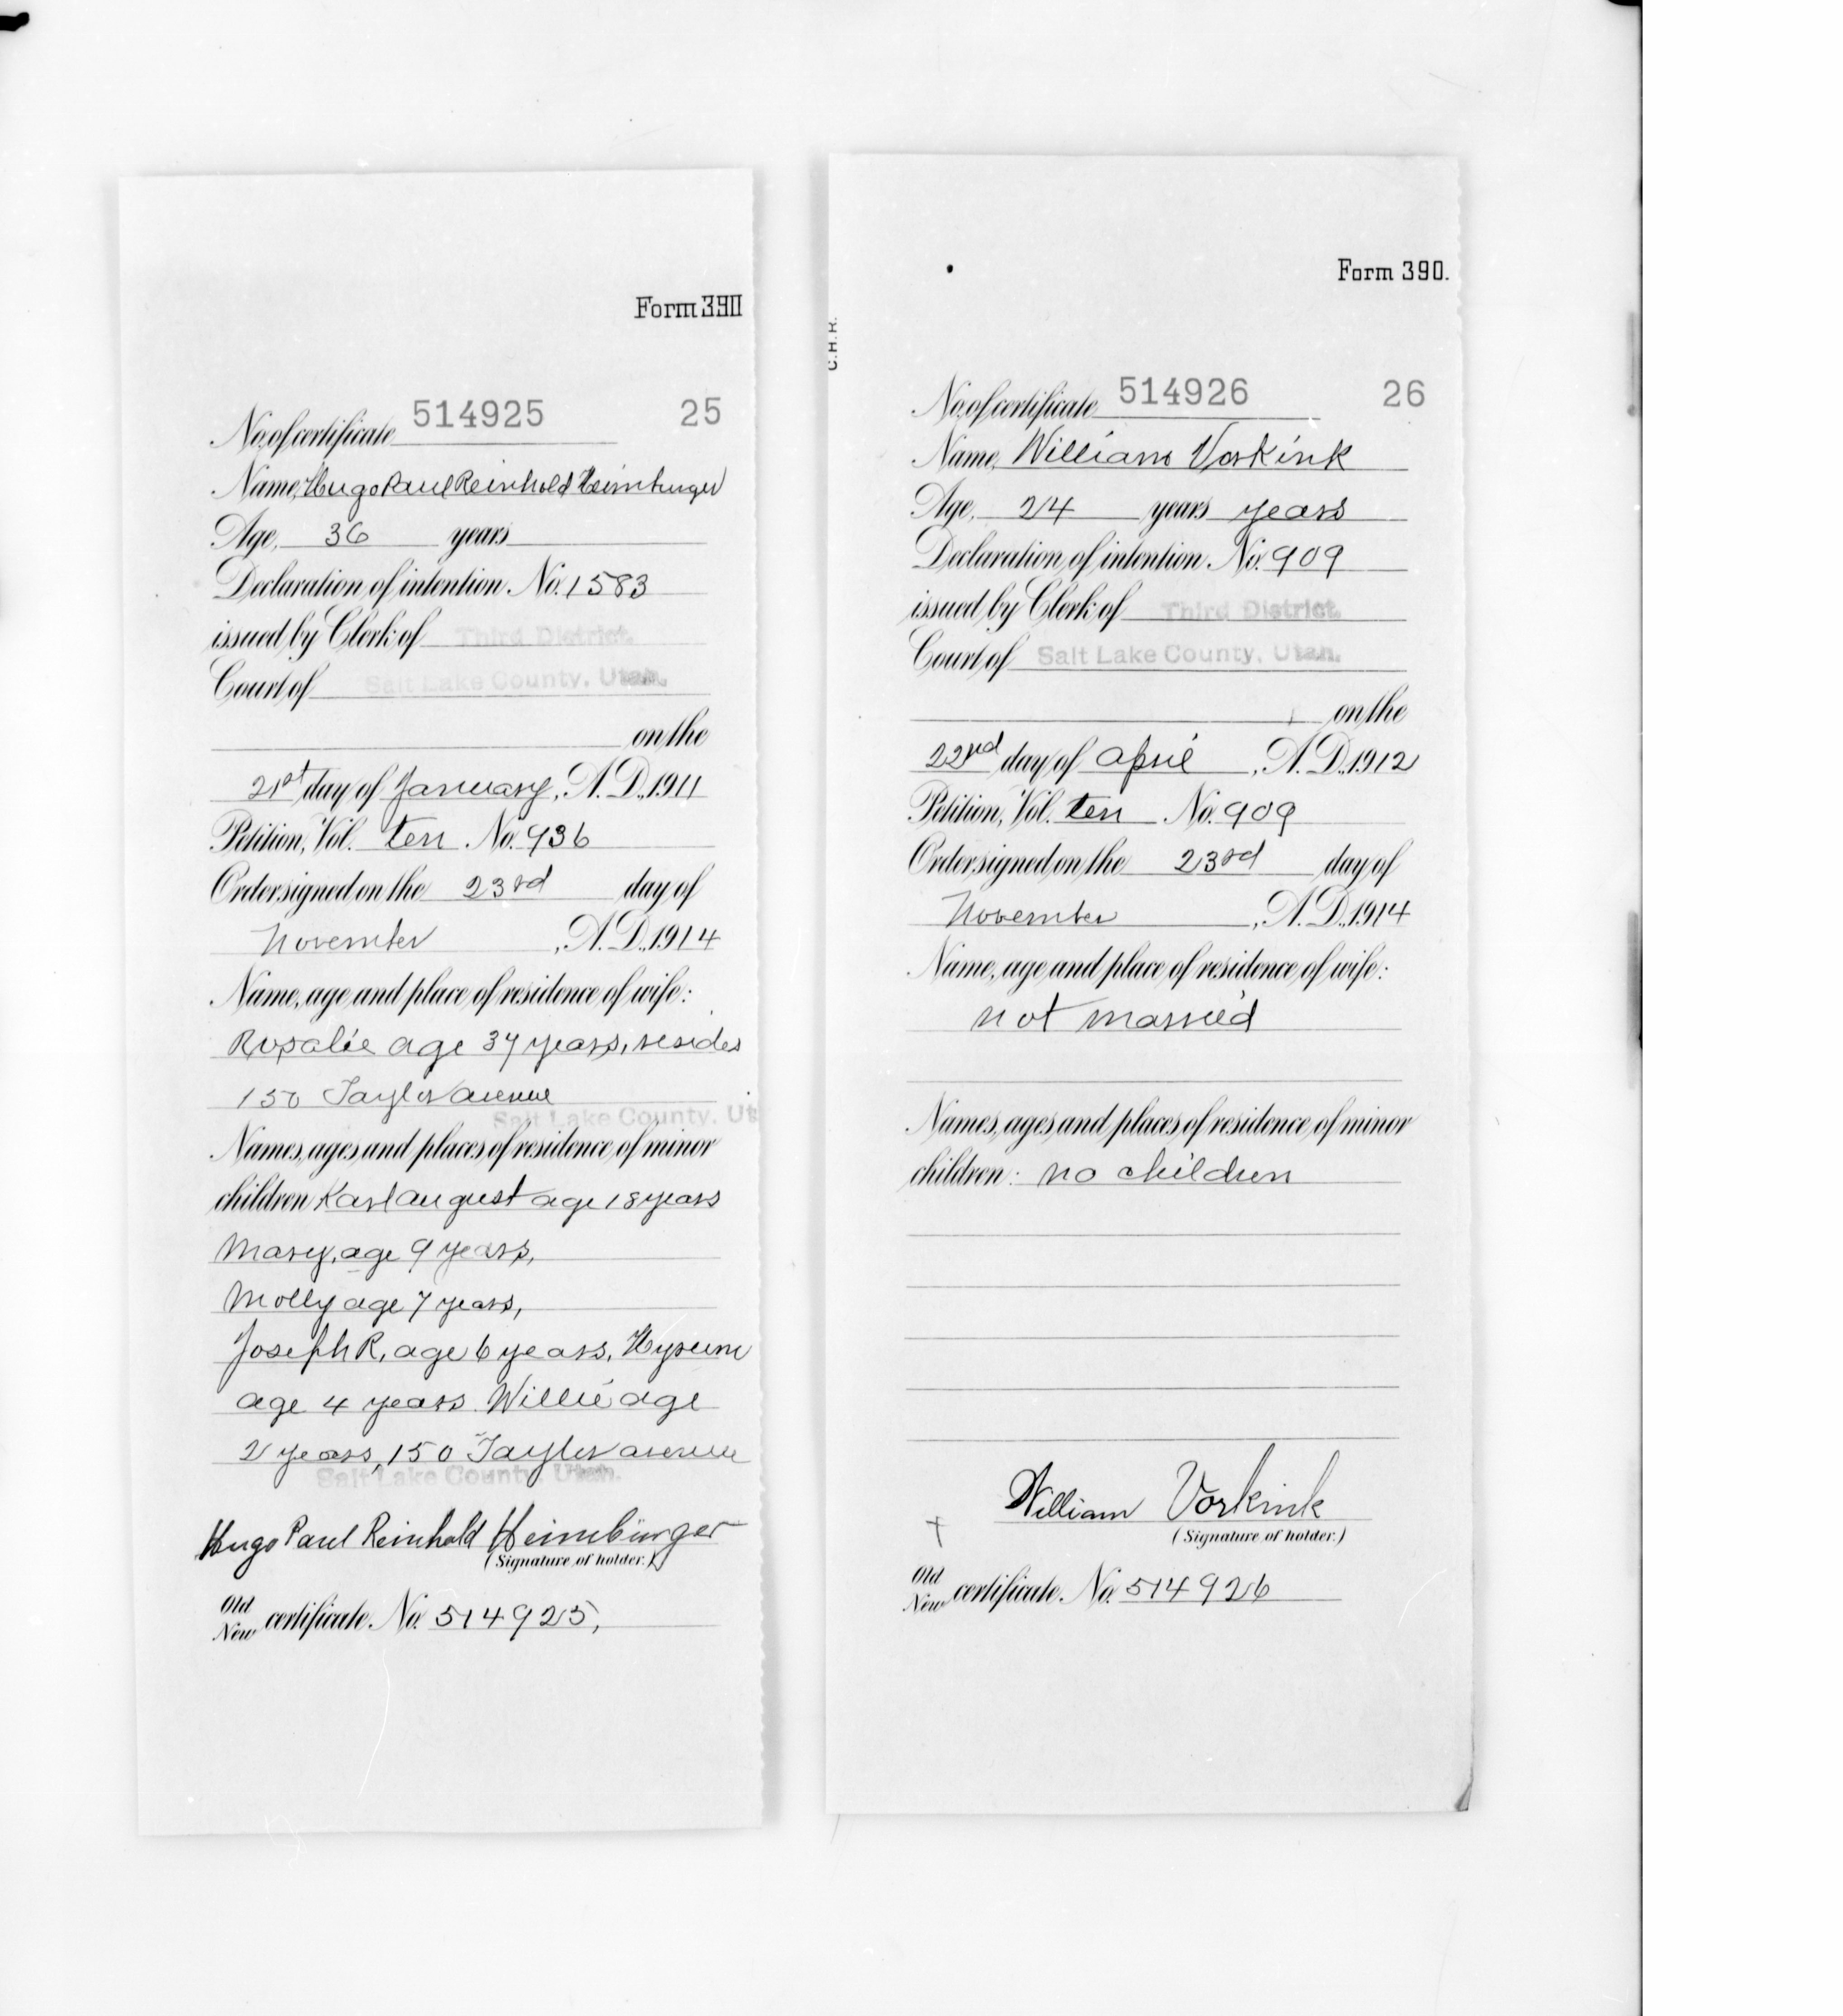 Form 390
No. of certificate 514925 25
Name, Hugo Paul Reinhold Heimburger
Age, 36 years
Declaration of intention. No. 1583
issued by Clerk of Third District.
Court of Salt Lake County, Utah.
on the
21st day of January, A. D., 1911
Petition, Vol. ten No. 936
Order signed on the 23rd day of
November, A. D., 1914
Name, age and place of residence of wife:
Rosalie age 37 years, resides
150 Taylor avenue
Salt Lake County, Ut
Names, ages and places of residence of minor
children Karl august age 18 years
Mary, age 9 years,
Molly age 7 years,
Joseph R, age 6 years, Hyrum
age 4 years Willie age
2 years, 150 Taylor avenue
Salt Lake County, Utah.
Hugo Paul Reinhold Heimbürger
(Signature of holder.)
Old
New certificate. No. 514925,
C.H.R.
Form 390.
No. of certificate 514926 26
Name, William Vorkink
Age, 24 years years
Declaration of intention. No. 909
issued by Clerk of Third District.
Court of Salt Lake County, Utah.
on the
22nd day of april, A. D., 1912
Petition, Vol. ten No. 909
Order signed on the 23rd day of
November, A. D., 1914
Name, age and place of residence of wife:
not married
Names, ages and places of residence of minor
children: no children
William Vorkink
(Signature of holder.)
Old
New certificate. No. 514926